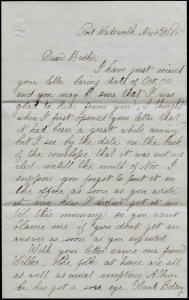 Fort Wadsworth Nov 6th
Dear Brother
I have just received
your letter bearing date of Oct
and you may be sure that I was
glad to hear from you. I thought
when I first opened your letter that
it had been a great while coming
but I see by the date on the back
of the envelope that it was not
until the ninth of Nov. I
suppose you forgot to put it in
the office as soon as you wrote
it any how I didnt get it un
till this morning so you want
blame me if you dont get an
answer as soon as you expected.
With your letter came one from
Willber. The folk at home are all
as well as usual
he has got a sore eye Frank